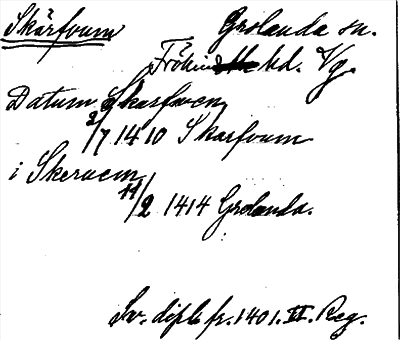 Skärfvum Grolanda sn.
Frökind hd. Vg.
Datum Skarfwen
2/7 1410 Skarfvum
i Skeruem
11/2 1414 Grolanda.
Sv. dipl. fr. 1401. II. Reg.